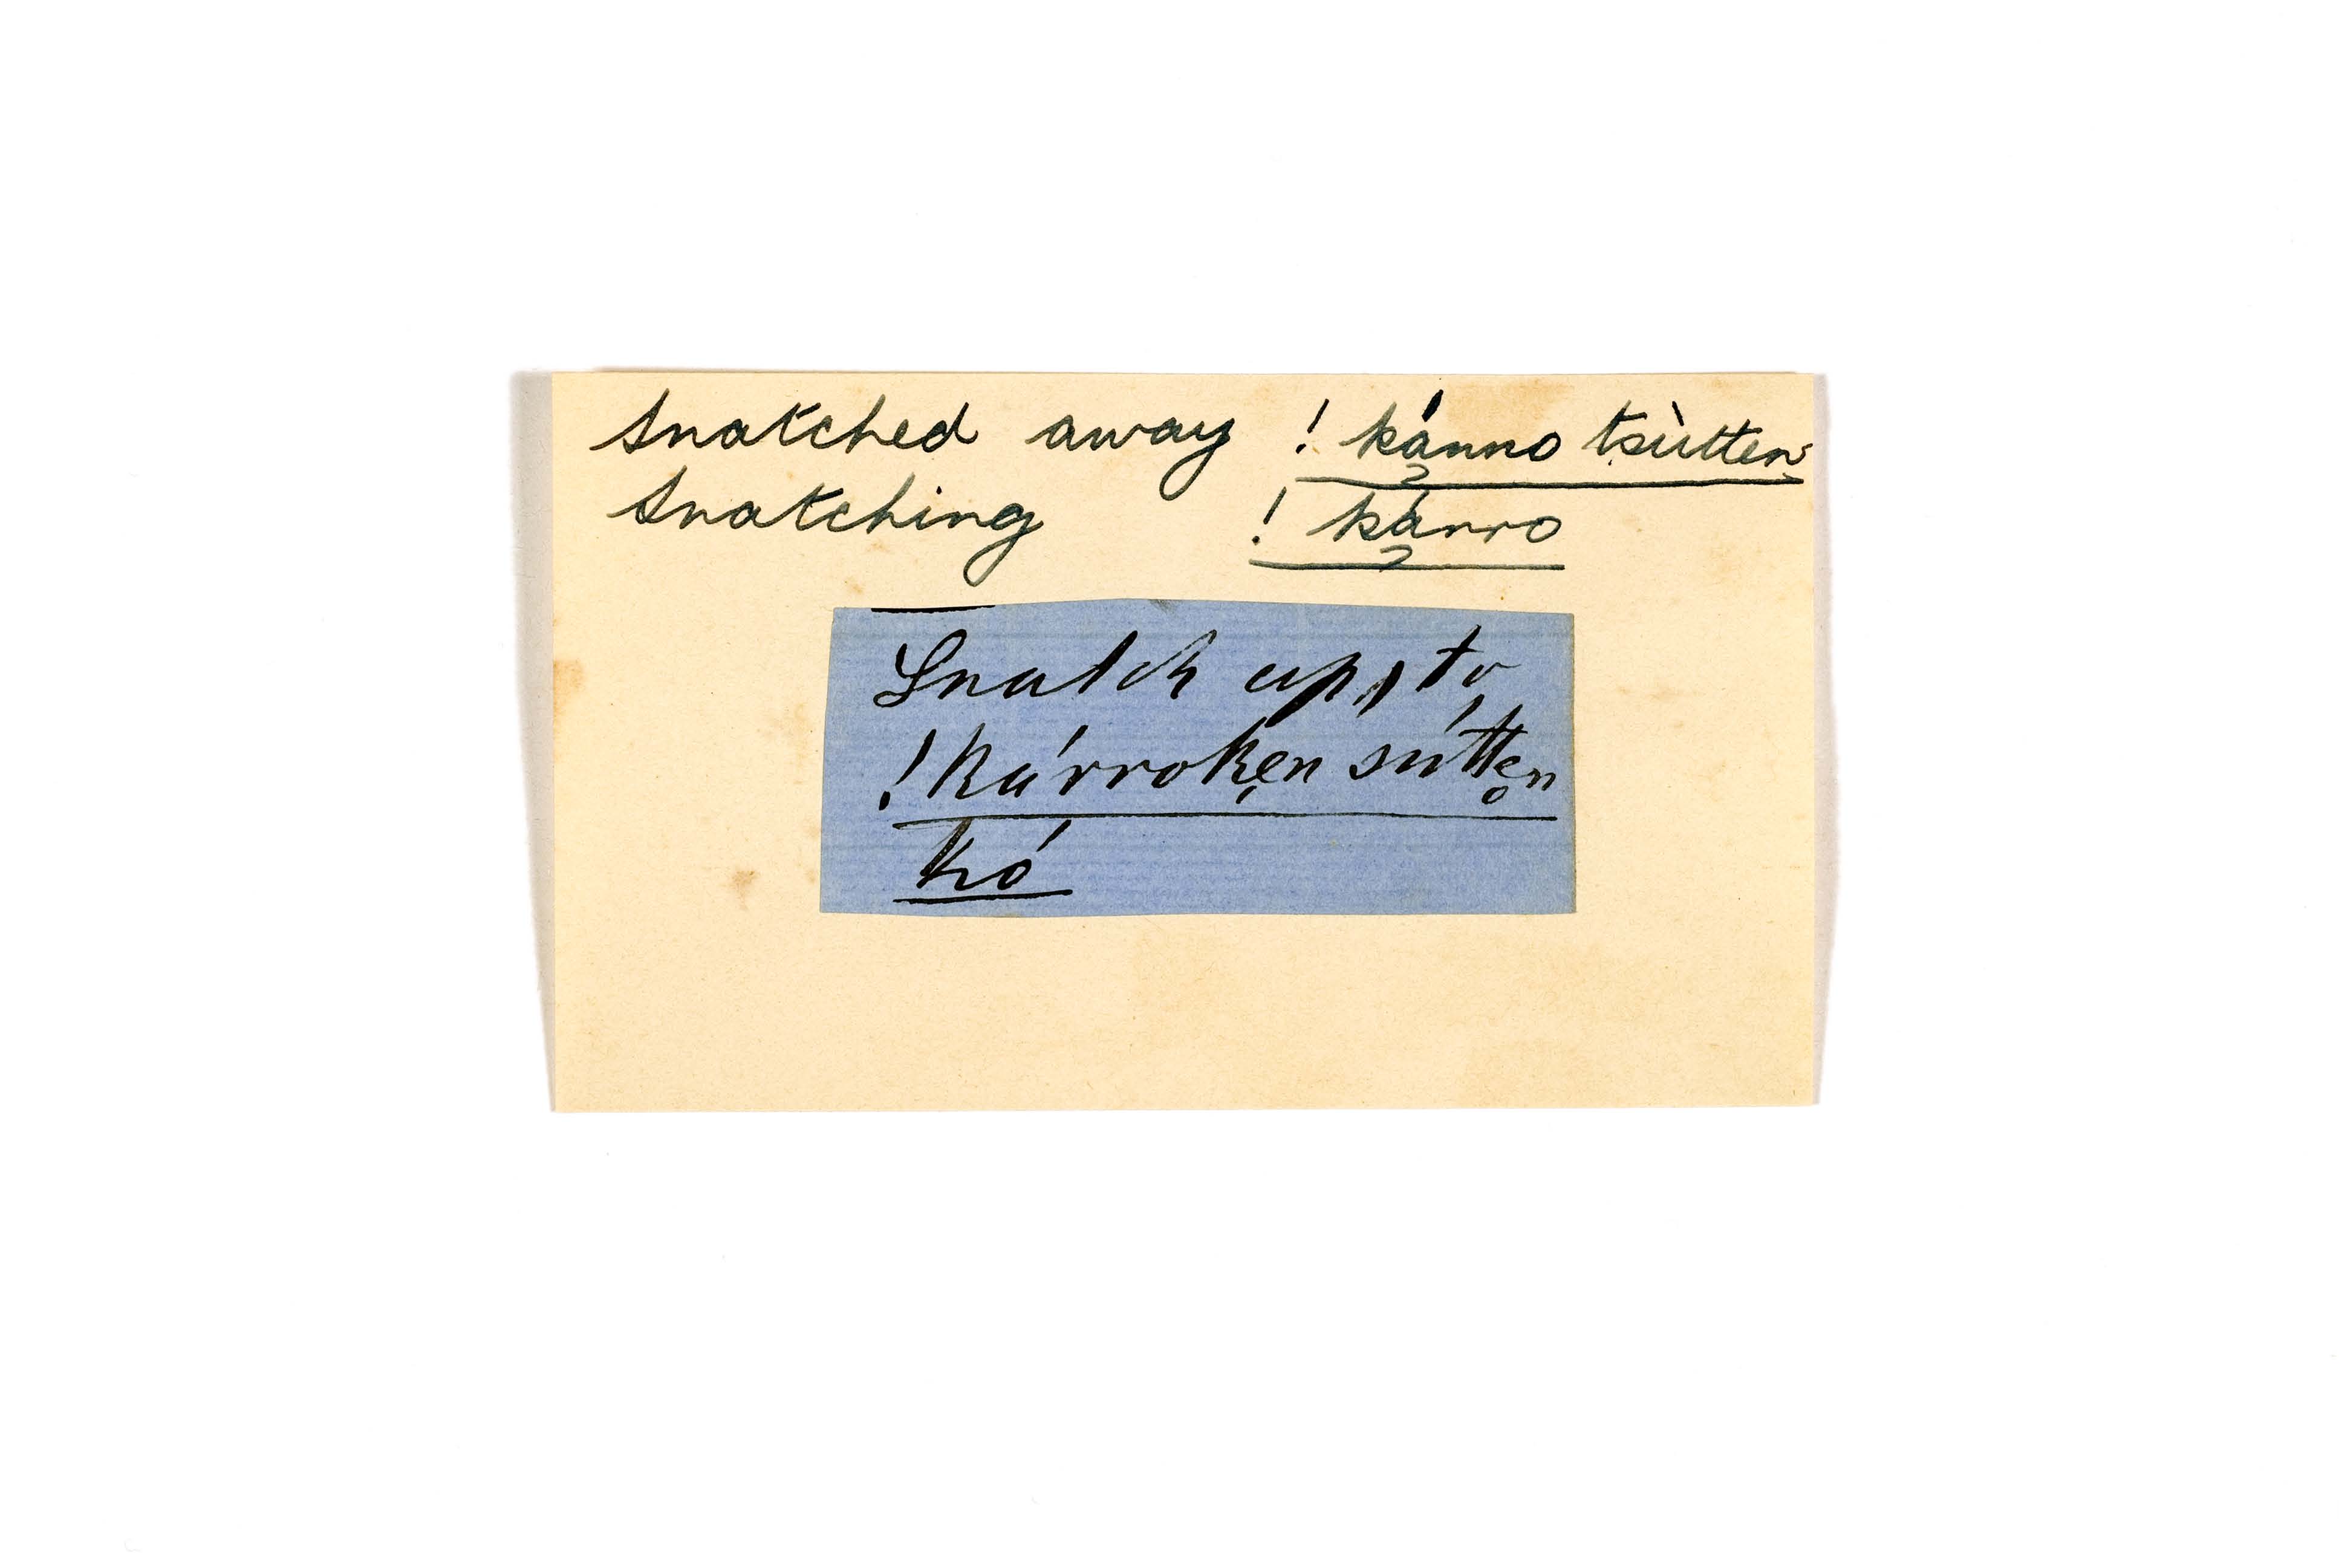 Snatched away ! kánno tsùtten
Snatching ! kárro
Snatch up, to
!kárroken sútten
kó